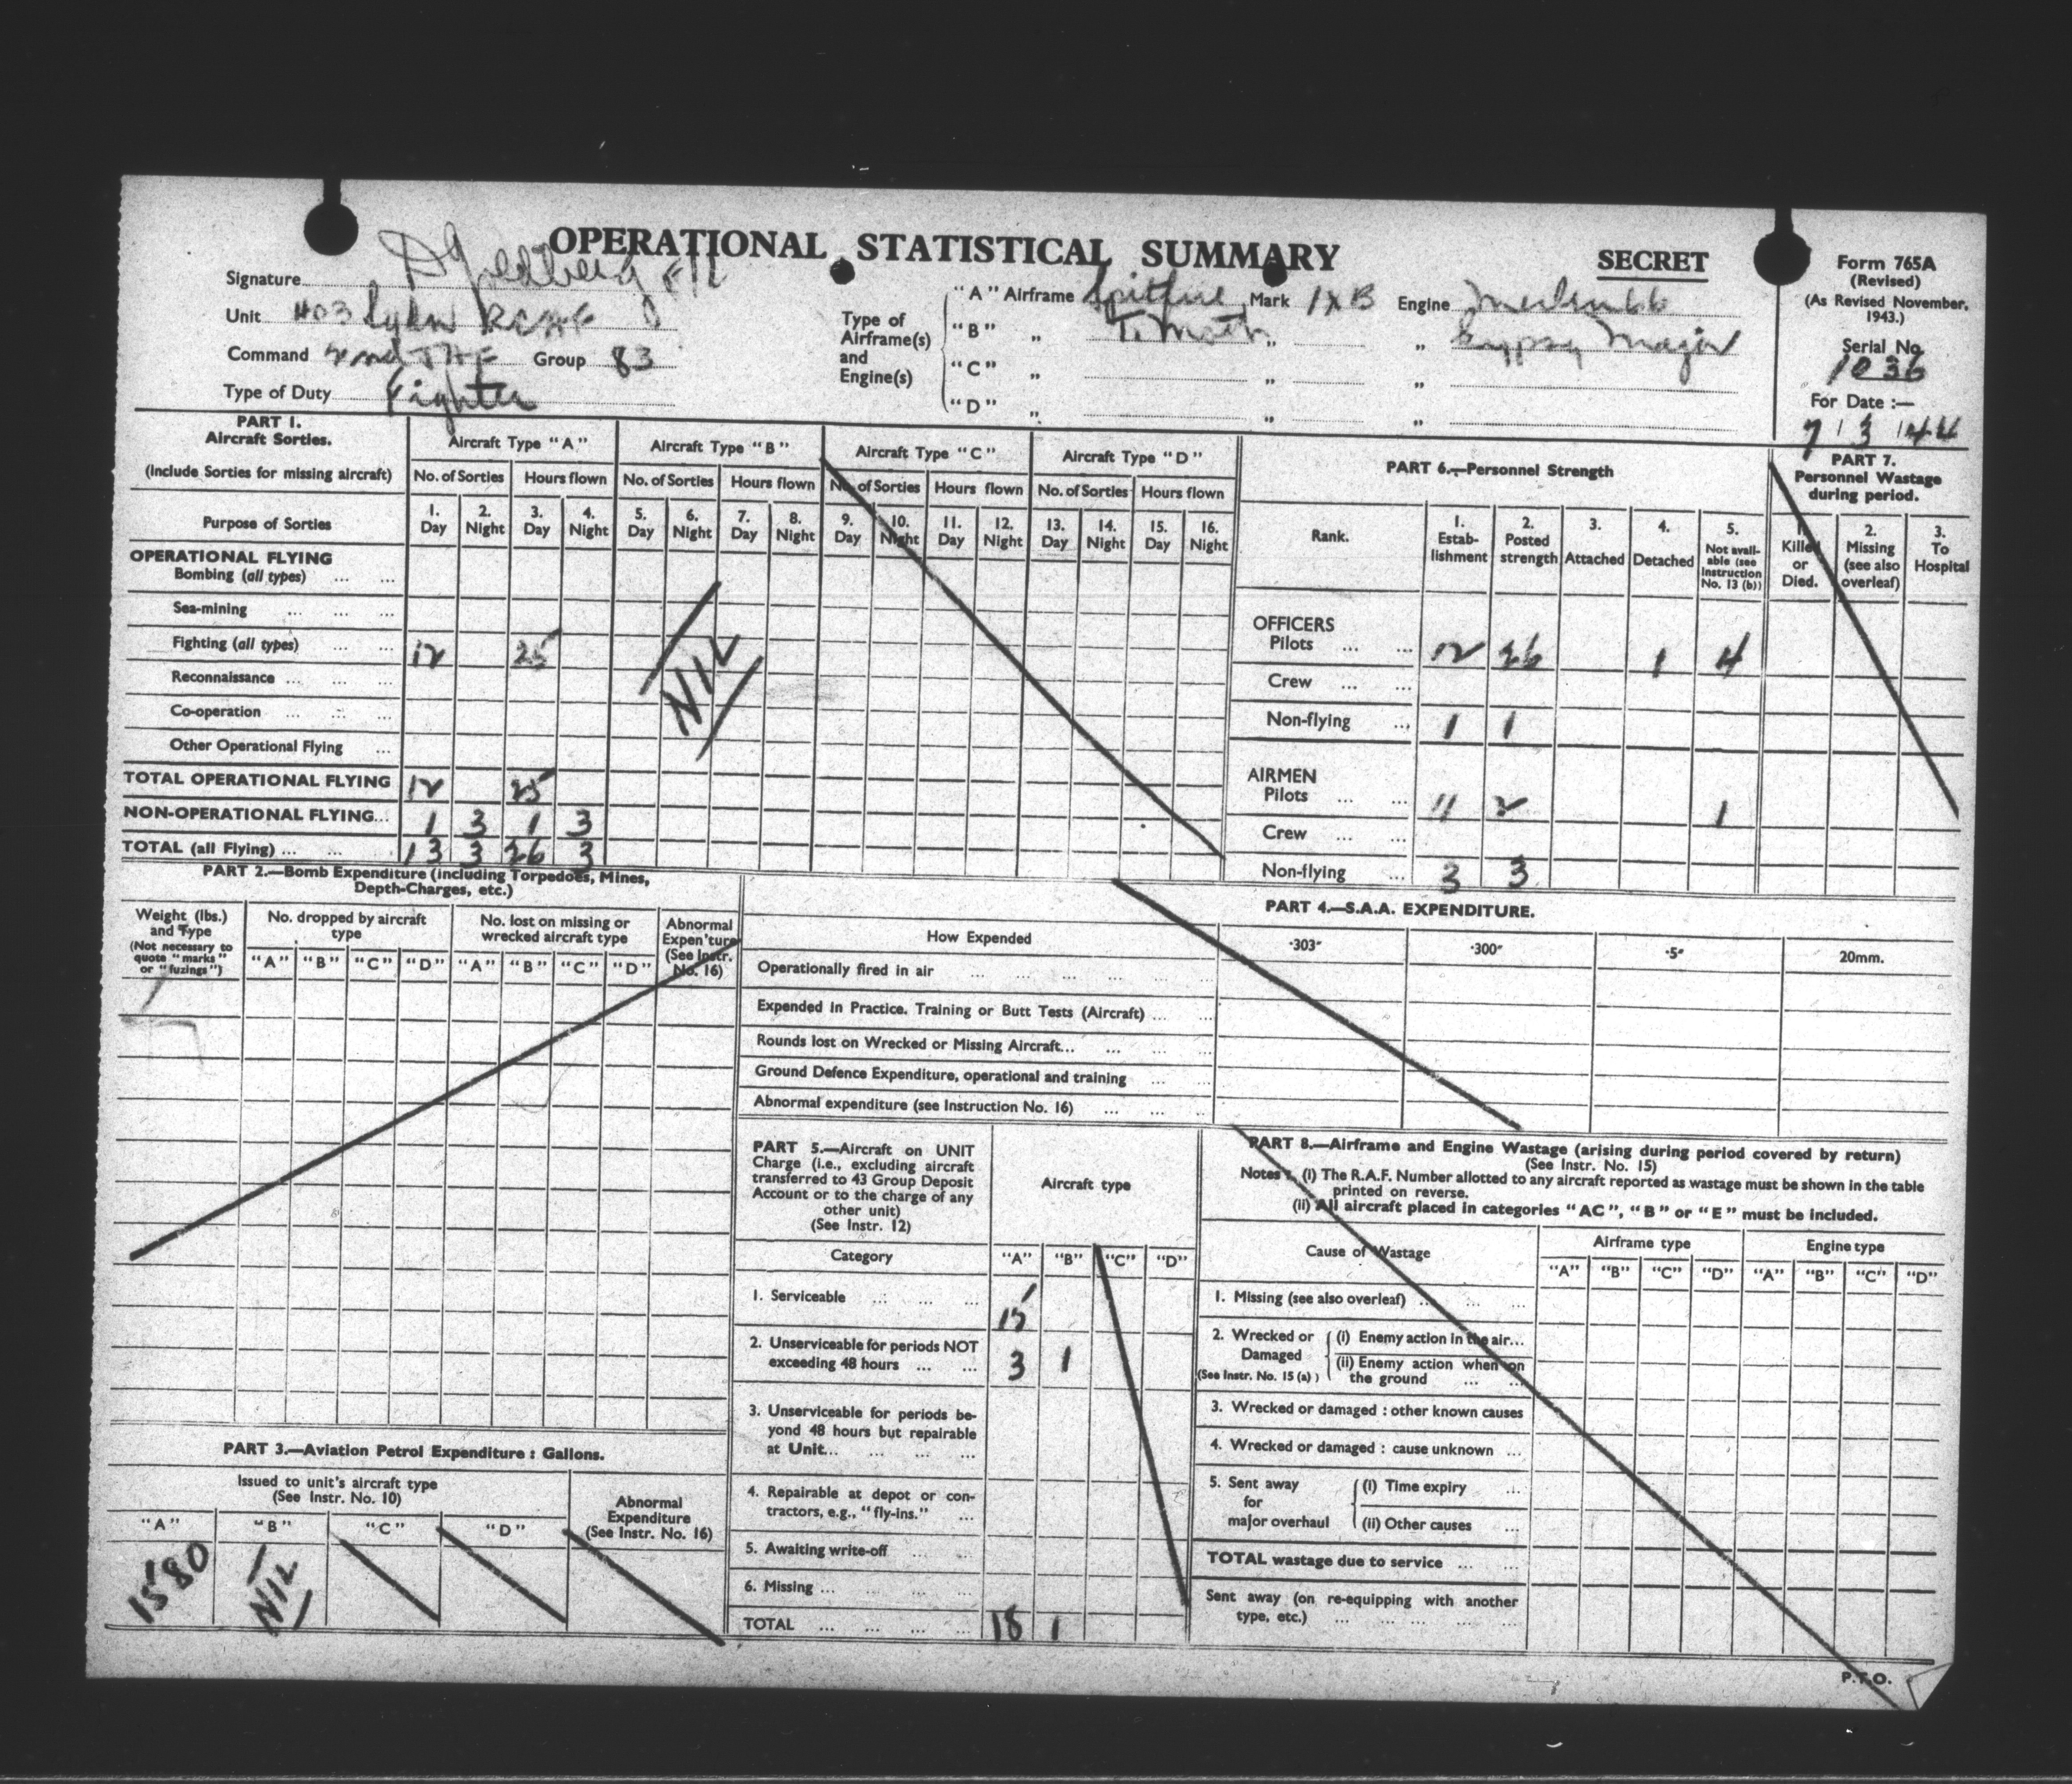 OPERATIONAL STATISTICAL SUMMARY
SECRET
Form 765A
(Revised)
(As Revised November,
1943.)
Serial No.
1036
For Date :—
7 3 44
Signature F/L
Unit 403 Sqdn RCAF
Command 2nd TAF Group 83
Type of Duty Fighter
Type of
Airframe(s)
and
Engine(s)
"A" Airframe Spitfire Mark IXB Engine Merlin 66
"B" „ T. Moth „ „ Gypsy Major
"C" „ „ „
"D" „ „ „
PART 1.
Aircraft Sorties.
(Include Sorties for missing aircraft)
Aircraft Type "A" Aircraft Type "B" Aircraft Type "C" Aircraft Type "D"
No. of Sorties Hours flown No. of Sorties Hours flown No. of Sorties Hours flown No. of Sorties Hours flown
Purpose of Sorties
1. Day 2. Night 3. Day 4. Night 5. Day 6. Night 7. Day 8. Night 9. Day 10. Night 11. Day 12. Night 13. Day 14. Night 15. Day 16. Night
OPERATIONAL FLYING
Bombing (all types) ... ...
Sea-mining ... ... ...
Fighting (all types) ... ... 12 25
Reconnaissance ... ... ...
Co-operation ... ... ...
Other Operational Flying ...
NIL
TOTAL OPERATIONAL FLYING 12 25
NON-OPERATIONAL FLYING... 1 3 1 3
TOTAL (all Flying) ... ... ... 13 3 26 3
PART 6.—Personnel Strength
Rank.
1. Estab-lishment
2. Posted strength
3. Attached
4. Detached
5. Not avail-able (see Instruction No. 13 (b))
OFFICERS
Pilots ... ... 12 26 1 4
Crew ... ...
Non-flying ... 1 1
AIRMEN
Pilots ... ... 11 2 1
Crew ... ...
Non-flying ... 3 3
PART 7.
Personnel Wastage
during period.
1. Killed or Died.
2. Missing (see also overleaf)
3. To Hospital
PART 2.—Bomb Expenditure (including Torpedoes, Mines,
Depth-Charges, etc.)
Weight (lbs.)
and Type
(Not necessary to
quote "marks"
or "fuzings")
No. dropped by aircraft
type
No. lost on missing or
wrecked aircraft type
Abnormal
Expen'ture
(See Instr.
No. 16)
"A" "B" "C" "D" "A" "B" "C" "D"
PART 4.—S.A.A. EXPENDITURE.
How Expended ·303" ·300" ·5" 20mm.
Operationally fired in air ... ... ... ... ...
Expended in Practice, Training or Butt Tests (Aircraft) ... ...
Rounds lost on Wrecked or Missing Aircraft... ... ... ...
Ground Defence Expenditure, operational and training ... ...
Abnormal expenditure (see Instruction No. 16) ... ... ...
PART 5.—Aircraft on UNIT
Charge (i.e., excluding aircraft
transferred to 43 Group Deposit
Account or to the charge of any
other unit)
(See Instr. 12)
Aircraft type
Category "A" "B" "C" "D"
1. Serviceable ... ... ... 15
2. Unserviceable for periods NOT
exceeding 48 hours ... ... 3 1
3. Unserviceable for periods be-
yond 48 hours but repairable
at Unit... ... ... ...
4. Repairable at depot or con-
tractors, e.g., "fly-ins." ...
5. Awaiting write-off ... ...
6. Missing ... ... ... ...
TOTAL ... ... ... ... 18 1
PART 8.—Airframe and Engine Wastage (arising during period covered by return)
(See Instr. No. 15)
Notes. (i) The R.A.F. Number allotted to any aircraft reported as wastage must be shown in the table
printed on reverse.
(ii) All aircraft placed in categories "AC", "B" or "E" must be included.
Cause of Wastage Airframe type Engine type
"A" "B" "C" "D" "A" "B" "C" "D"
1. Missing (see also overleaf) ... ... ...
2. Wrecked or Damaged (See Instr. No. 15 (a))
(i) Enemy action in the air...
(ii) Enemy action when on
the ground ... ...
3. Wrecked or damaged : other known causes
4. Wrecked or damaged : cause unknown ...
5. Sent away
for
major overhaul
(i) Time expiry ...
(ii) Other causes ...
TOTAL wastage due to service ... ...
Sent away (on re-equipping with another
type, etc.) ... ... ... ... ...
PART 3.—Aviation Petrol Expenditure : Gallons.
Issued to unit's aircraft type
(See Instr. No. 10)
Abnormal
Expenditure
(See Instr. No. 16)
"A" "B" "C" "D"
1580 NIL
P.T.O.